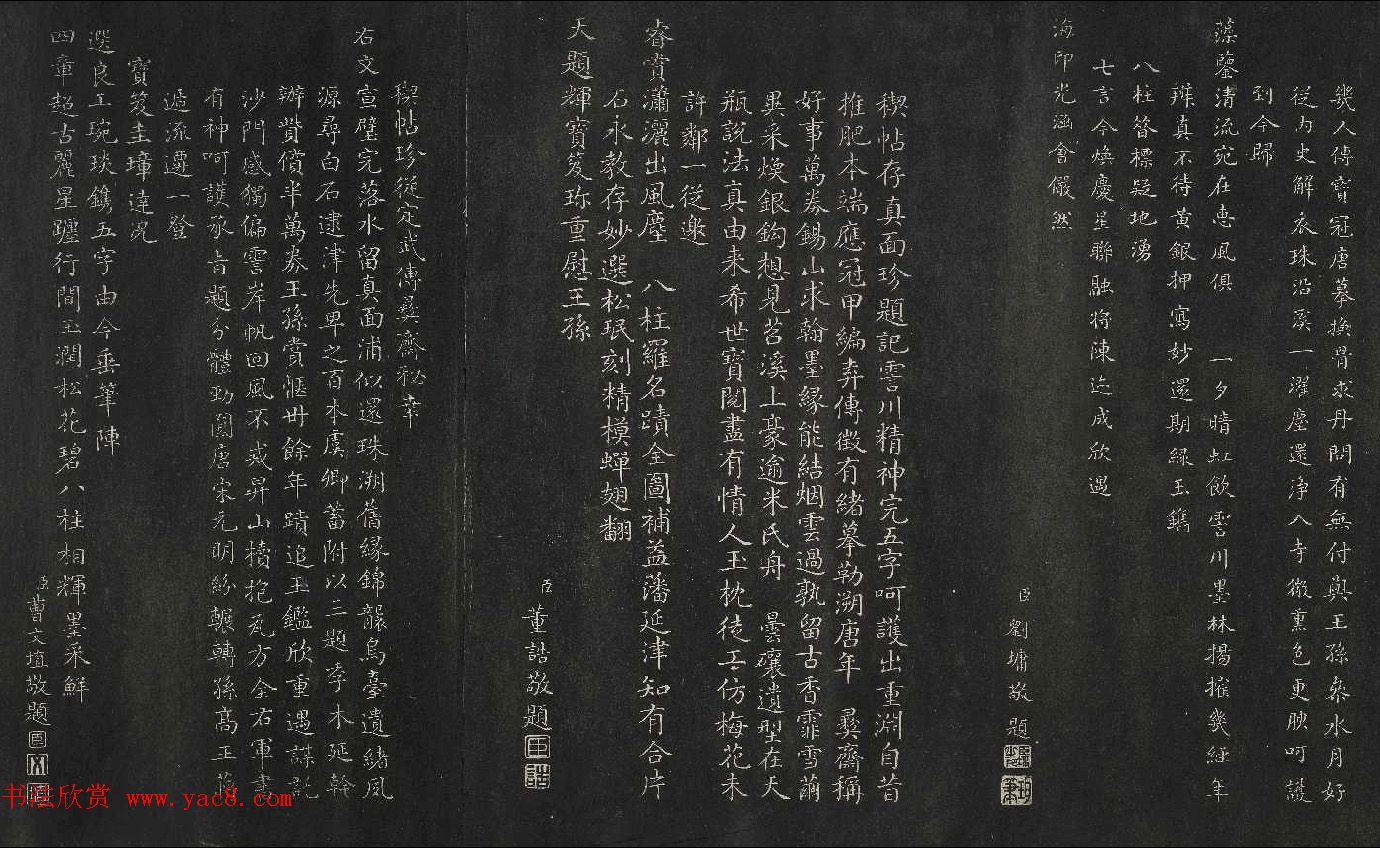 幾人傳寶冠唐摹換骨求丹問有無付與王孫參水月好
從內史解衣珠沿溪一濯塵還淨八寺微熏色更腴呵護
到今歸
藻鑒清流宛在惠風俱 一夕晴虹飲霅川墨林揚搉幾經年
辨真不待黃銀押寫妙還期綠玉鐫
八柱簪標疑地湧
七言今煥慶星聯融將陳迹成欣遇
海印光涵會儼然
臣劉墉敬題
稧帖存真面珍題記霅川精神完五字呵護出重淵自昔
推肥本端應冠甲編弆傳徵有緒摹勒溯唐年 彝齋稱
好事萬券錫山求翰墨緣能結烟雲過孰留古香霏雪繭
異采煥銀鈎想見苕溪上豪逾米氏舟 曇礦遺型在天
瓶說法真由來希世寶閱盡有情人玉枕徒工仿梅花未
許鄰一從邀
睿賞瀟灑出風塵 八柱羅名蹟全圖補益藩延津知有合片
石永教存妙選松珉刻精模蟬翅翻
天題輝寶笈珍重慰王孫
臣董誥敬題
稧帖珍從定武傳彝齋秘幸
右文宣璧完落水留真面浦似還珠溯舊緣錦贉烏臺遺緒夙
源尋白石逮津先卑之百本虞卿蓄附以三題李木延幹
辦貲償半萬券王孫賞愜卅餘年蹟追玉鑑欣重遇謀託
沙門感獨偏霅岸帆回風不戒昇山櫝抱瓦方全右軍書
有神呵護承旨題分體勁圓唐宋元明紛輾轉孫高王蔣
遞流遷一登
寶笈圭璋達況
選良工琬琰鐫五字由今垂筆陣
四章超古麗星躔行間玉潤松花碧八柱相輝墨采鮮
臣曹文埴敬題
臣
誥
书法欣赏 www.yac8.com